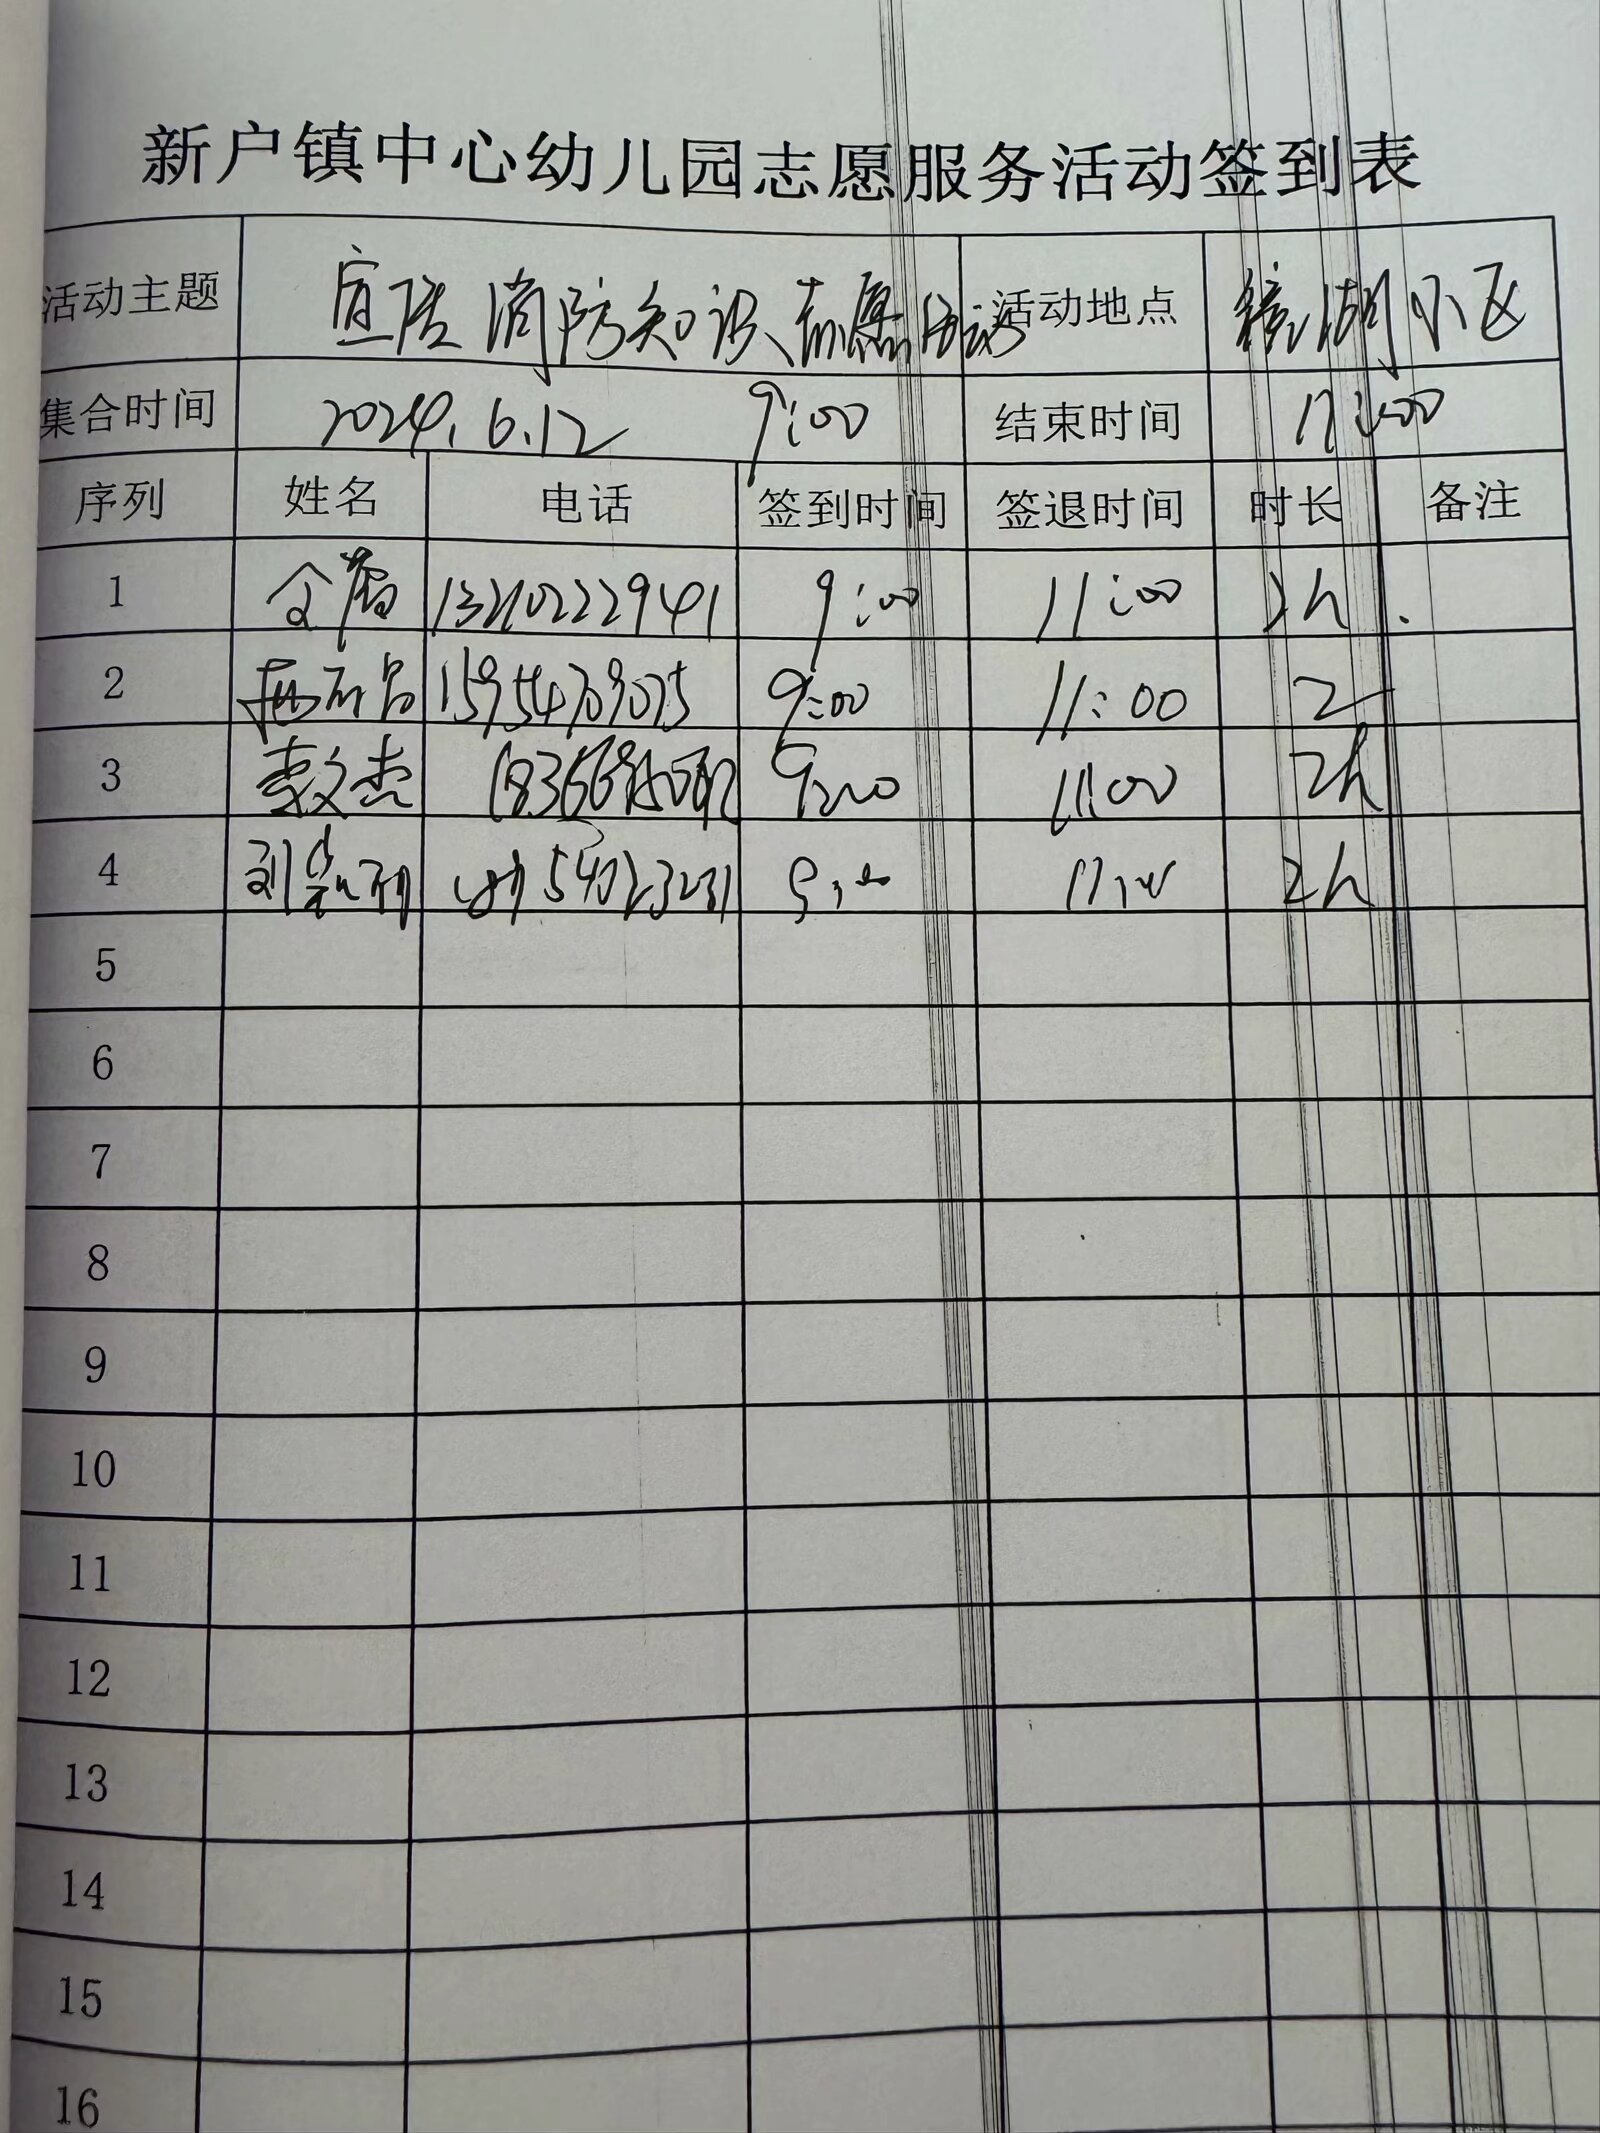 新户镇中心幼儿园志愿服务活动签到表
活动主题 宜居消防知识志愿活动 活动地点 镜湖小区
集合时间 2024.6.12 9:00 结束时间 11:00
序列 姓名 电话 签到时间 签退时间 时长 备注
1 13210222941 9:00 11:00 2h
2 15954709075 9:00 11:00 2
3 李文杰 9:00 11:00 2h
4 9:00 11:00 2h
5
6
7
8
9
10
11
12
13
14
15
16